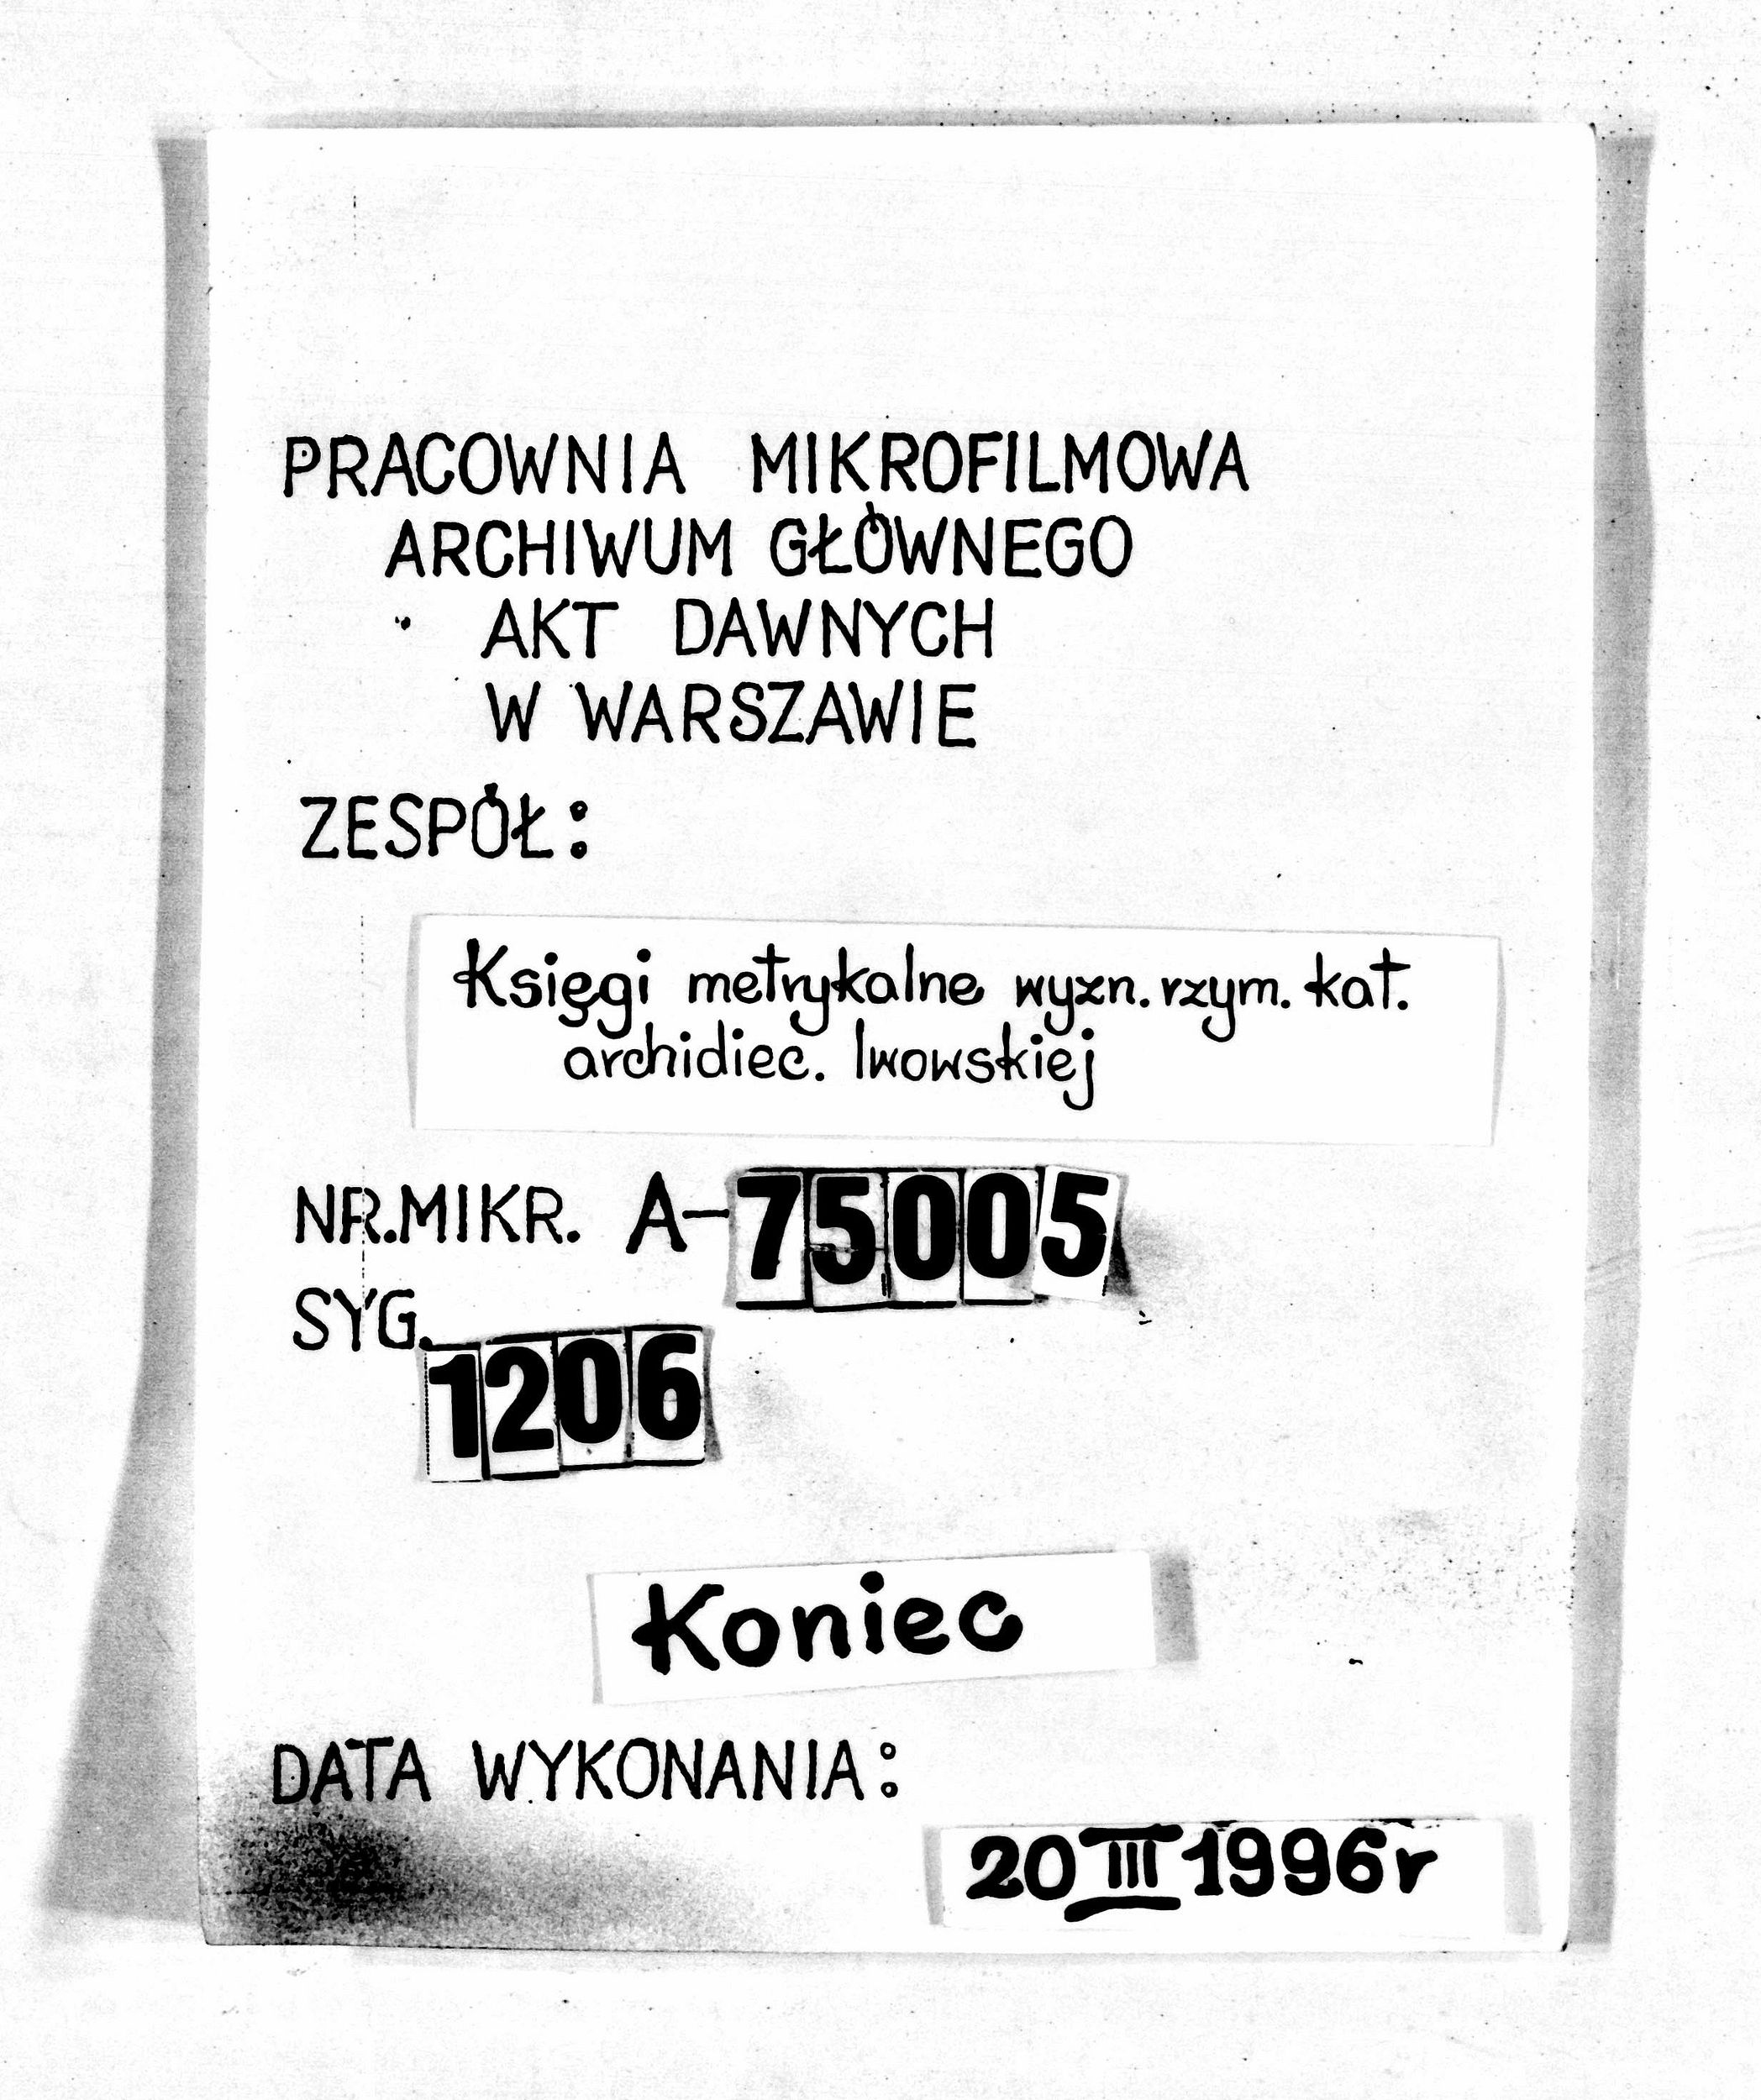 PRACOWNIA MIKROFILMOWA
ARCHIWUM GŁÓWNEGO
AKT DAWNYCH
W WARSZAWIE
ZESPÓŁ:
Księgi metrykalne wyzn. rzym. kat.
archidiec. lwowskiej
NR.MIKR. A-75005
SYG.
1206
Koniec
DATA WYKONANIA:
20 III 1996r